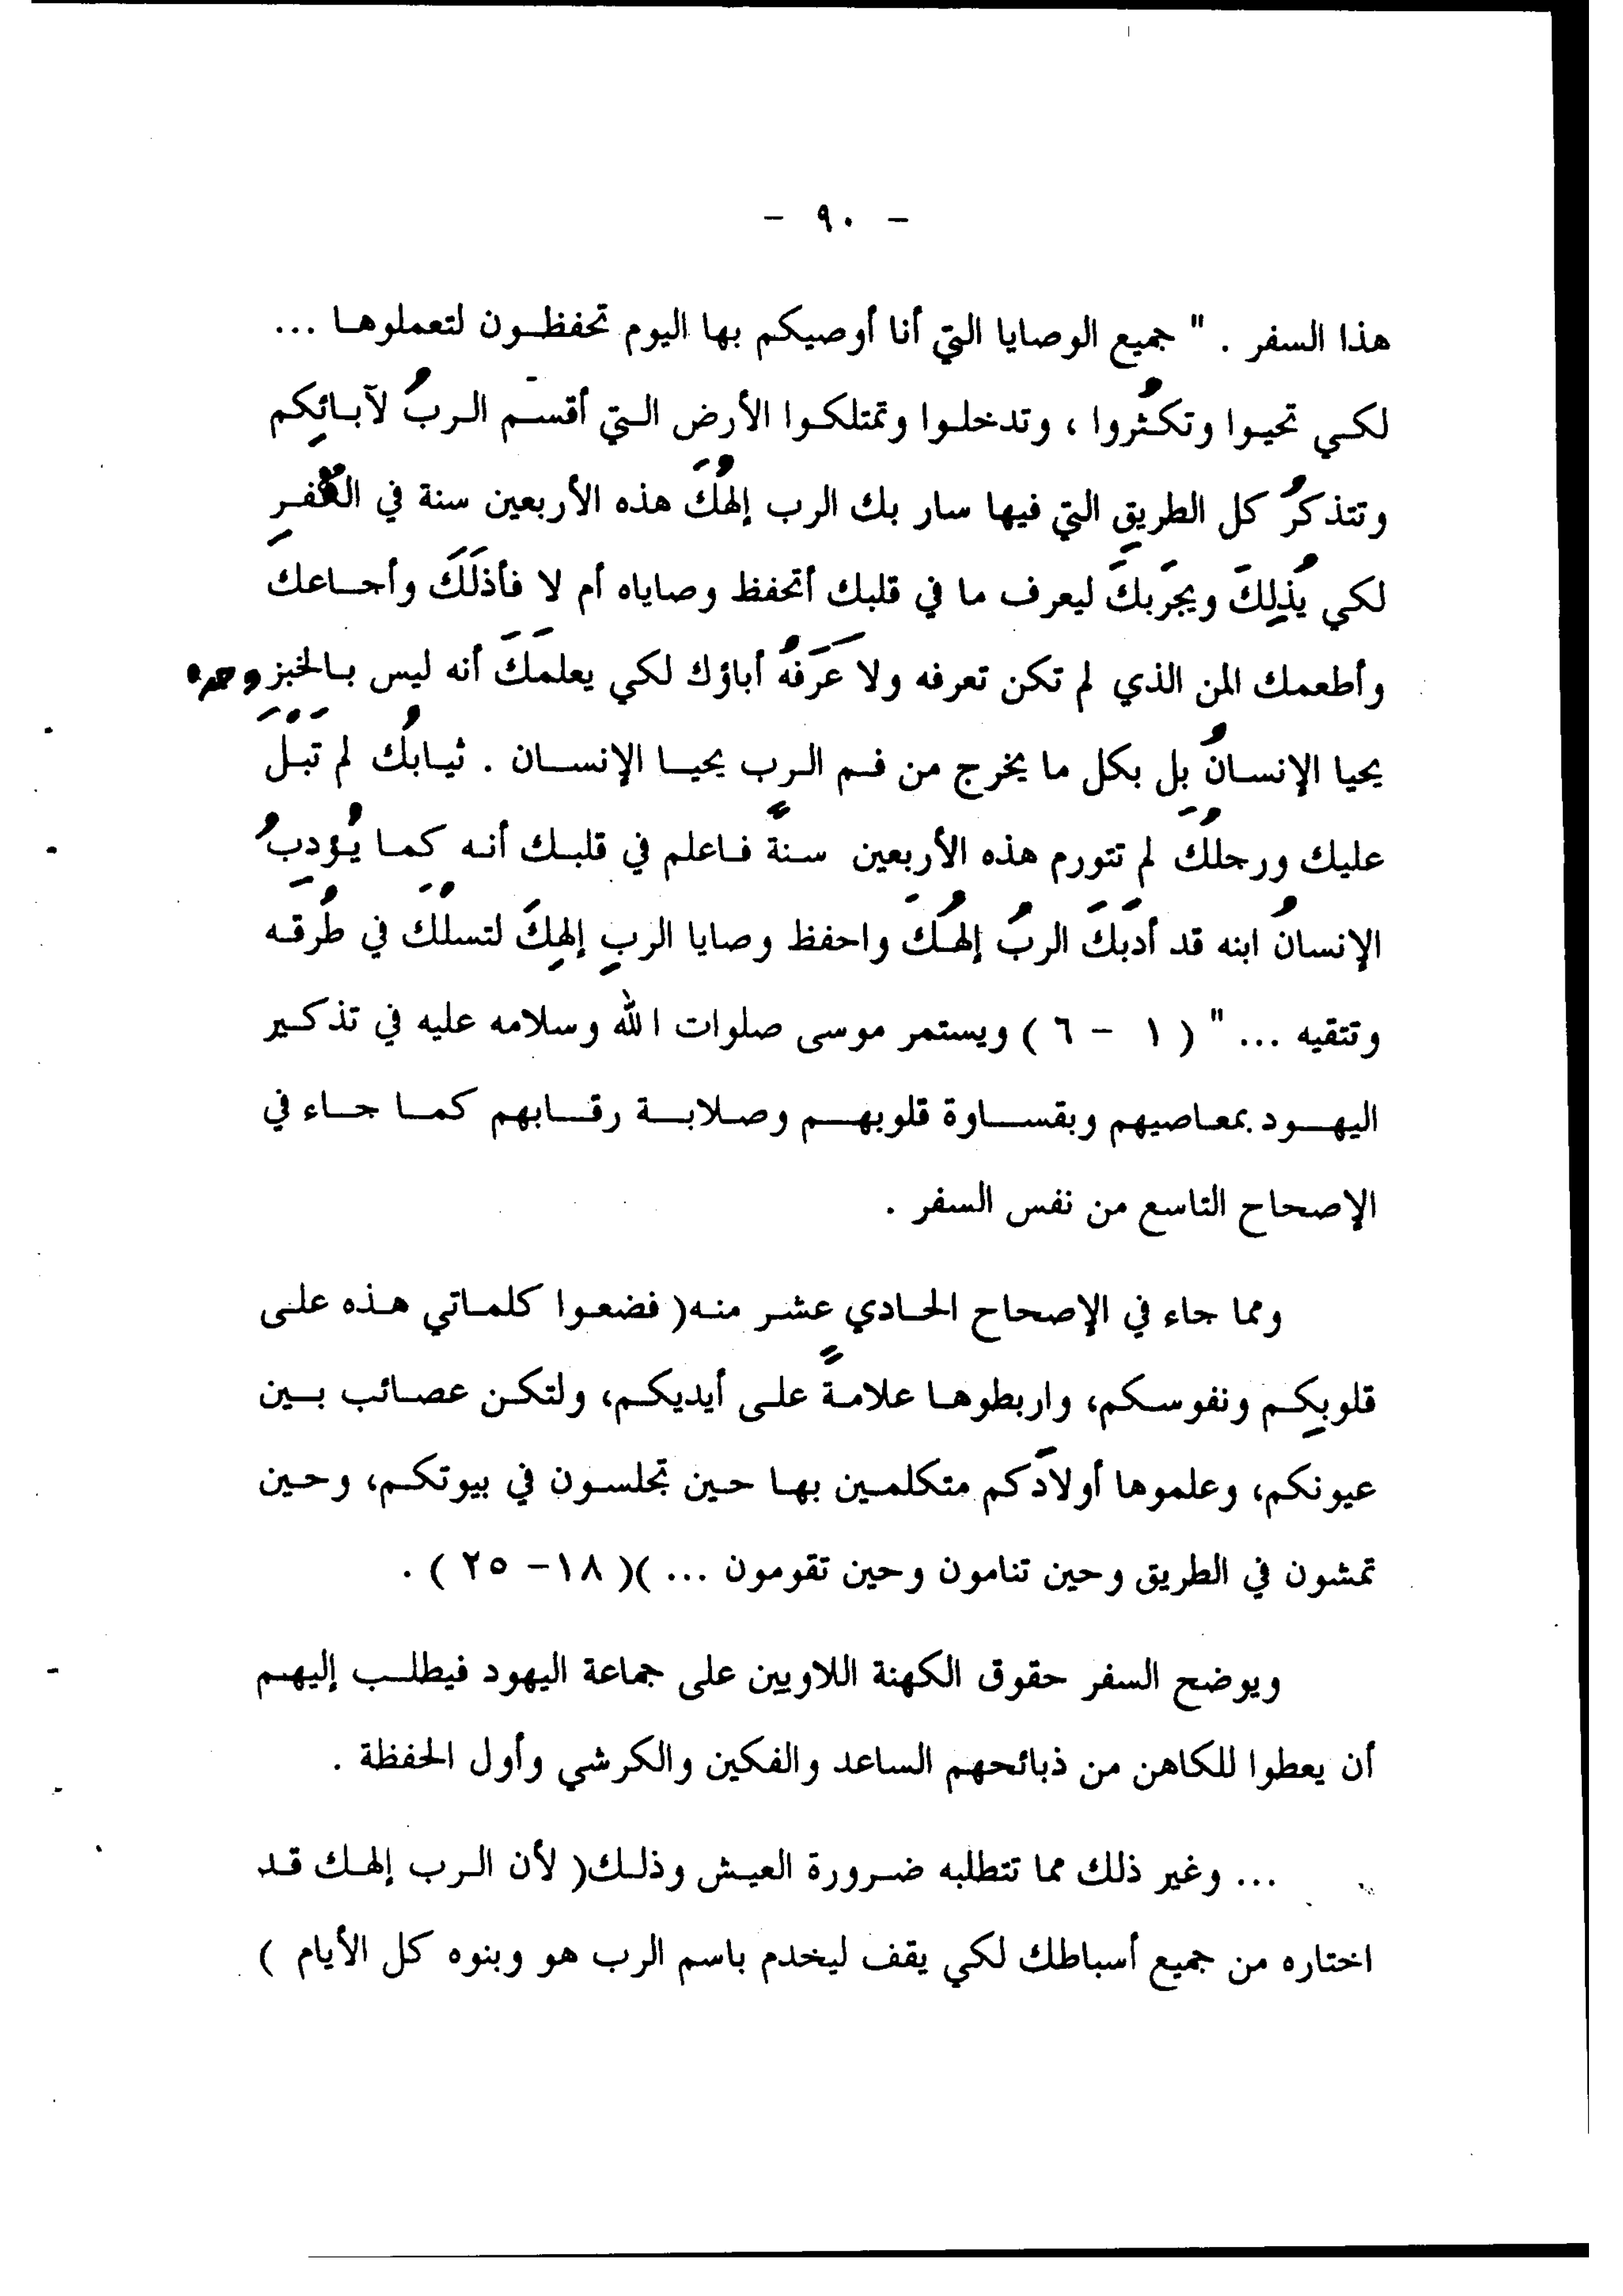 - ٩٠ -
هذا السفر . " جميع الوصايا التي أنا أوصيكم بها اليوم تحفظون لتعملوها ...
لكي تحيوا وتكثُروا ، وتدخلوا وتمتلكوا الأرض التي أقسَم الربُ لآبائِكم
وتتذكرُ كل الطريقِ التي فيها سار بك الرب إلهُكَ هذه الأربعين سنة في القفرِ
لكي يُذلِكَ ويجَربكَ ليعرف ما في قلبك أتحفظ وصاياه أم لا فأذلَكَ وأجاعك
وأطعمك المن الذي لم تكن تعرفه ولا عَرَفهُ أباؤك لكي يعلمَكَ أنه ليس بالخبز وحده
يحيا الإنسانُ بل بكل ما يخرج من فم الرب يحيا الإنسان . ثيابُك لم تَبْلَ
عليك ورجلُكَ لم تتورم هذه الأربعين سنةً فاعلم في قلبك أنه كما يُؤدِبُ
الإنسانُ ابنه قد أدبَكَ الربُ إلهُكَ واحفظ وصايا الربِ إلهِكَ لتسلُكَ في طُرقَه
وتتقيه ... " ( ١ - ٦ ) ويستمر موسى صلوات الله وسلامه عليه في تذكير
اليهود بمعاصيهم وبقساوة قلوبهم وصلابة رقابهم كما جاء في
الإصحاح التاسع من نفس السفر .
ومما جاء في الإصحاح الحادي عشر منه( فضعوا كلماتي هذه على
قلوبِكم ونفوسكم، واربطوها علامةً على أيديكم، ولتكن عصائب بين
عيونكم، وعلموها أولادَكم متكلمين بها حين تجلسون في بيوتكم، وحين
تمشون في الطريق وحين تنامون وحين تقومون ... )( ١٨- ٢٥ ) .
ويوضح السفر حقوق الكهنة اللاويين على جماعة اليهود فيطلب إليهم
أن يعطوا للكاهن من ذبائحهم الساعد والفكين والكرشي وأول الحفظة .
... وغير ذلك مما تتطلبه ضرورة العيش وذلك( لأن الرب إلهك قد
اختاره من جميع أسباطك لكي يقف ليخدم باسم الرب هو وبنوه كل الأيام )